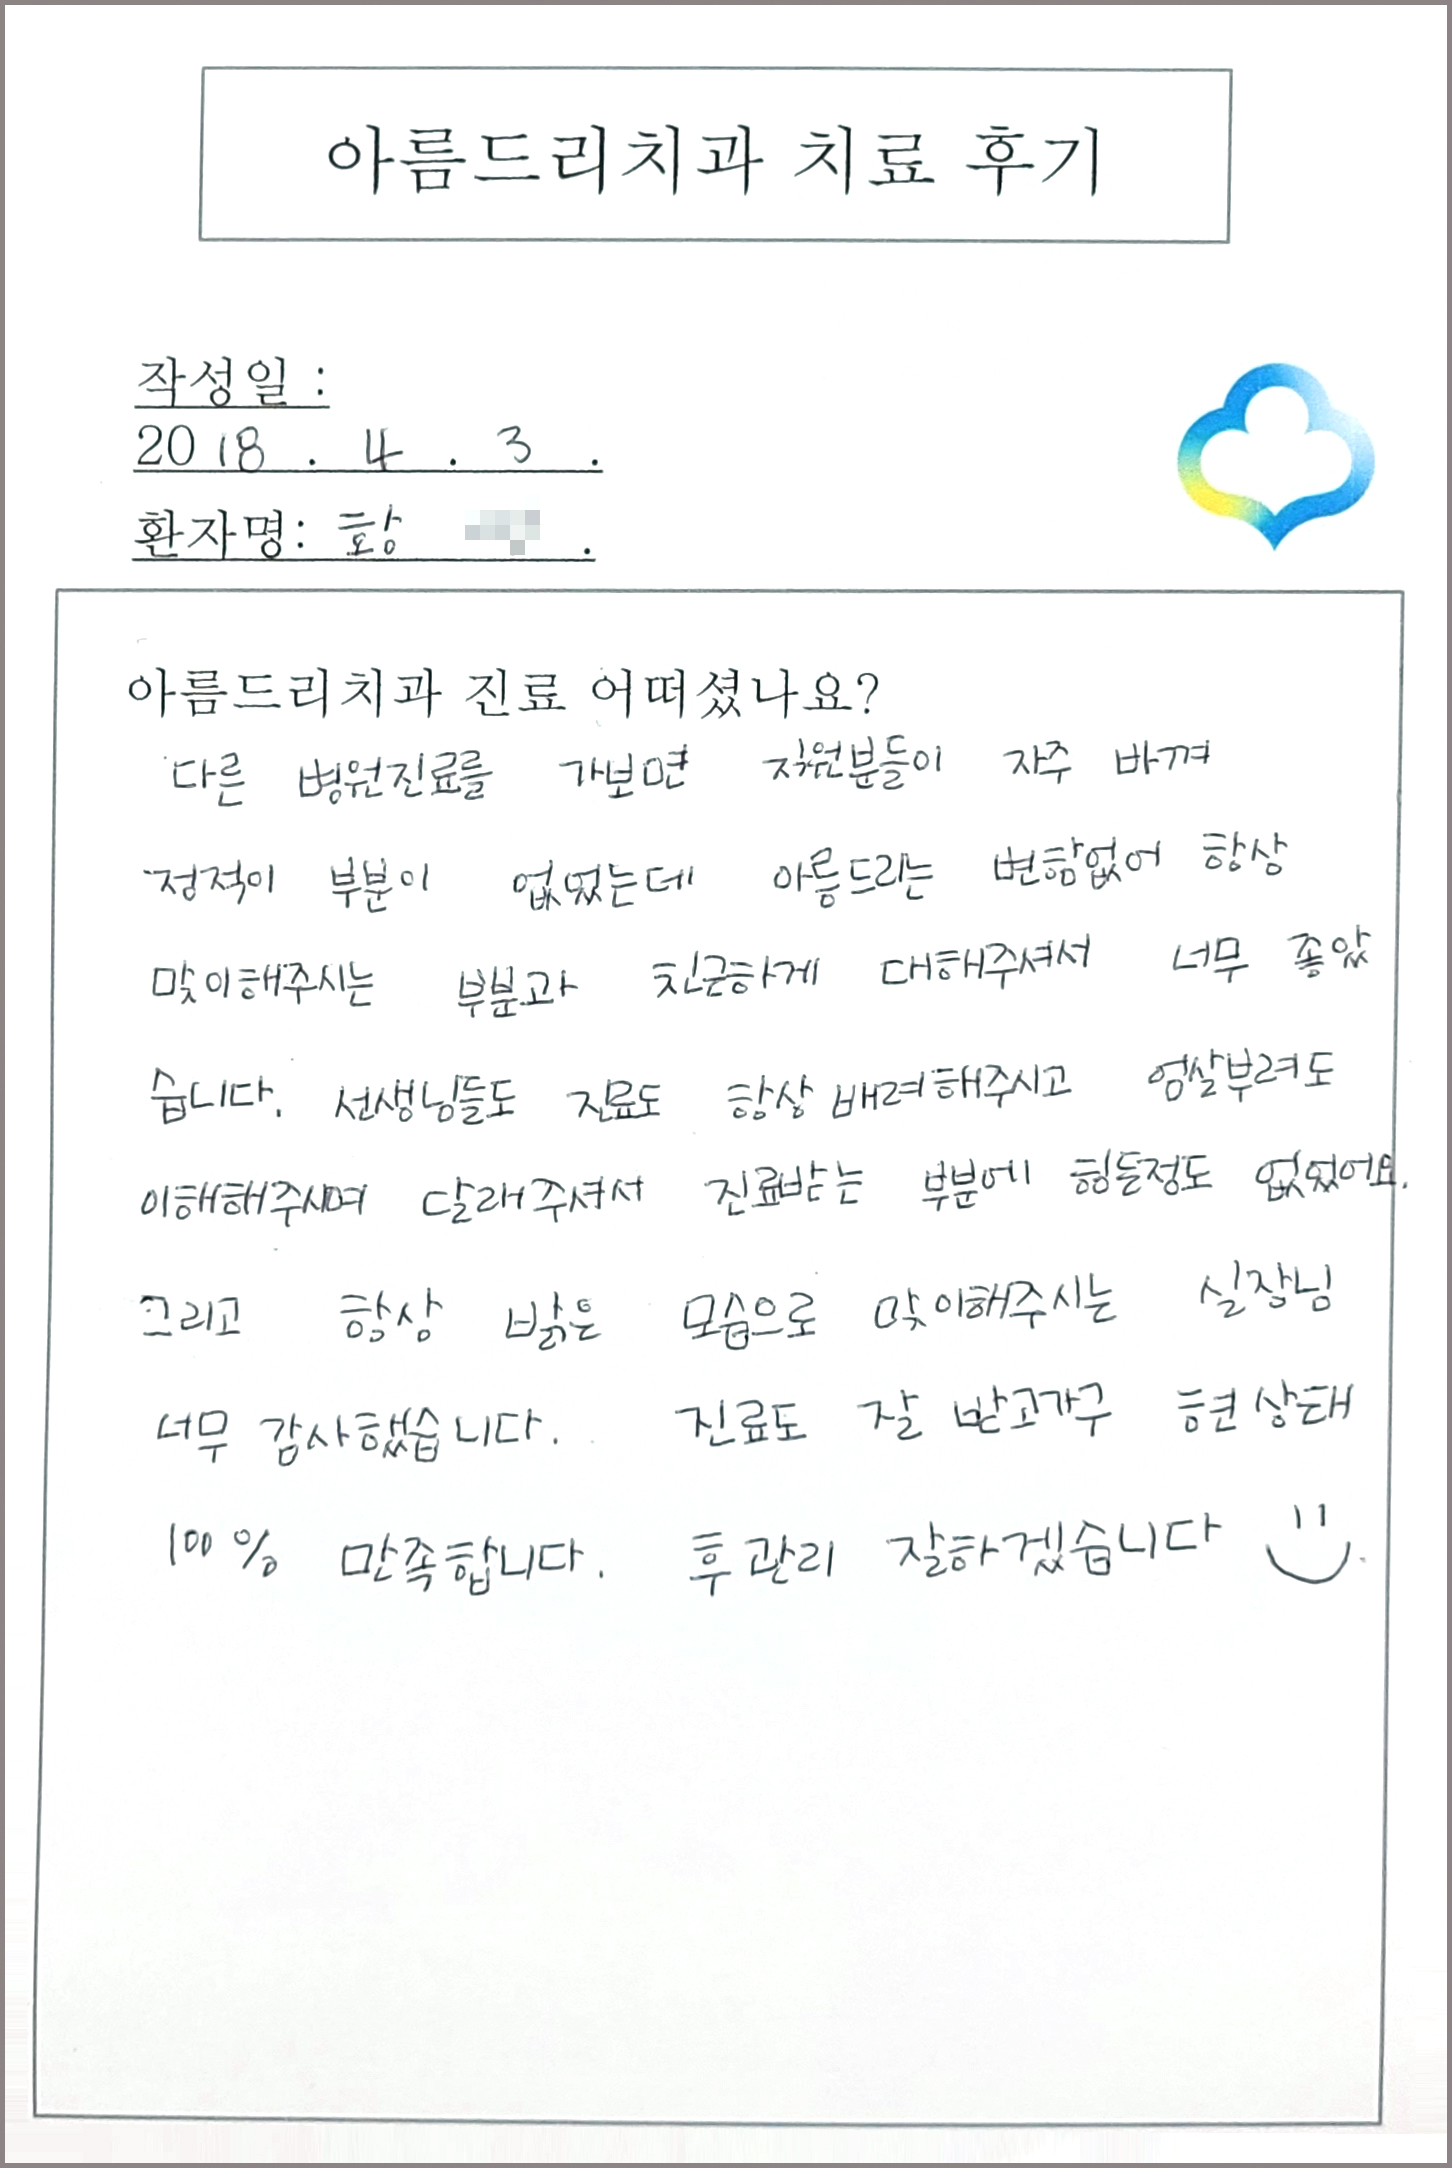 아름드리치과 치료 후기
작성일 :
2018 . 4 . 3 .
환자명: 황 .
아름드리치과 진료 어떠셨나요?
다른 병원진료를 가보면 직원분들이 자주 바껴
정적이 부분이 없었는데 아름드리는 변함없어 항상
맞이해주시는 부분과 친근하게 대해주셔서 너무 좋았
습니다. 선생님들도 진료도 항상 배려해주시고 엄살부려도
이해해주시며 달래주셔서 진료받는 부분에 힘든정도 없었어요.
그리고 항상 밝은 모습으로 맞이해주시는 실장님
너무 감사했습니다. 진료도 잘 받고가구 현상태
100% 만족합니다. 후관리 잘하겠습니다